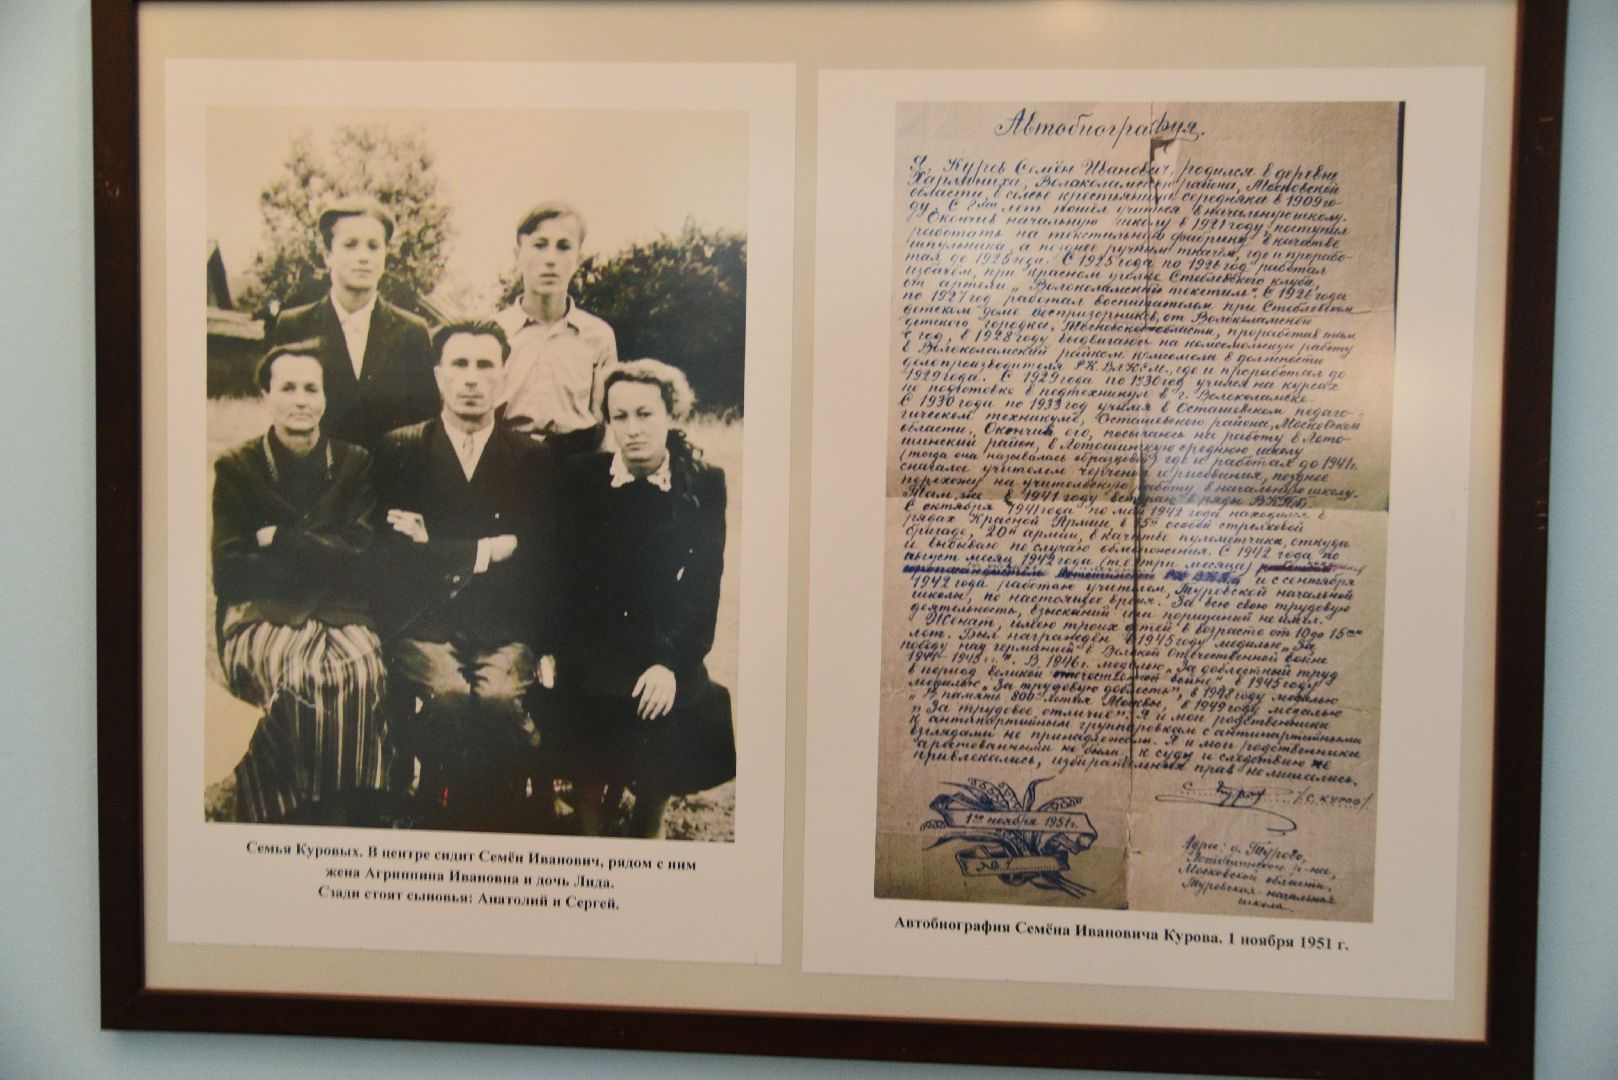 Семья Куровых. В центре сидит Семён Иванович, рядом с ним
жена Агриппина Ивановна и дочь Лида.
Сзади стоят сыновья: Анатолий и Сергей.
Автобиография.
Я, Куров Семён Иванович, родился в деревне
Харланиха, Волоколамского района, Московской
области, в семье крестьянина середняка в 1909 го-
ду. С 8ми лет пошёл учиться в начальную школу.
Окончив начальную школу в 1921 году, поступил
работать на текстильную фабрику в качестве
шпульника, а позднее ручным ткачём, где и прорабо-
тал до 1925 года. С 1925 года по 1926 год работал
избачём, при красном уголке Стеблевского клуба,
от артели „Волоколамский текстиль". С 1926 года
по 1927 год работал воспитателем при Стеблевском
детском доме беспризорников, от Волоколамского
детского городка, Московской области, проработав там
год, в 1928 году выдвигаюсь на комсомольскую работу
в Волоколамский райком комсомола в должности
делопроизводителя Р.К. ВЛКСМ., где и проработал до
1929 года. С 1929 года по 1930 год учился на курсах
по подготовке в педтехникум в г. Волоколамске.
С 1930 года по 1933 год учился в Осташевском педаго-
гическом техникуме, Осташевского района, Московской
области. Окончив его, посылаюсь на работу в Лото-
шинский район, в Лотошинскую среднюю школу
(тогда она называлась образцовой) где и работал до 1941 г.
сначала учителем черчения и рисования, позднее
перехожу на учительскую работу в начальную школу.
Там же в 1941 году вступаю в ряды ВКП(б).
С октября 1941 года по май 1942 года находился в
рядах Красной Армии в особой стрелковой
бригаде, 20й армии, в качестве пулемётчика, откуда
и выбываю по случаю обморожения. С 1942 года по
август месяц 1942 года (т.е. три месяца)
и с сентября
1942 года работаю учителем, Туровской начальной
школы, по настоящее время. За всю свою трудовую
деятельность, взысканий или порицаний не имел.
Женат, имею троих детей в возрасте от 10 до 15ти
лет. Был награждён в 1945 году медалью „За
победу над Германией в Великой Отечественной войне
1941-1945 г.г." В 1946 г. медалью „За доблестный труд
в период Великой Отечественной войне" в 1945 году
медалью „За трудовую доблесть", в 1948 году медалью
„В память 800-летия Москвы", в 1949 году медалью
„За трудовое отличие". Я и мои родственники
к антипартийным группировкам с антипартийными
взглядами не принадлежали. Я и мои родственники
арестованными не были, к суду и следствию не
привлекались, избирательных прав не лишались.
С. Куров /С. Куров/
1го ноября 1951 г.
Адрес: д. Турово,
Лотошинского р-на,
Московской области.
Туровская начальная
школа.
Автобиография Семёна Ивановича Курова. 1 ноября 1951 г.